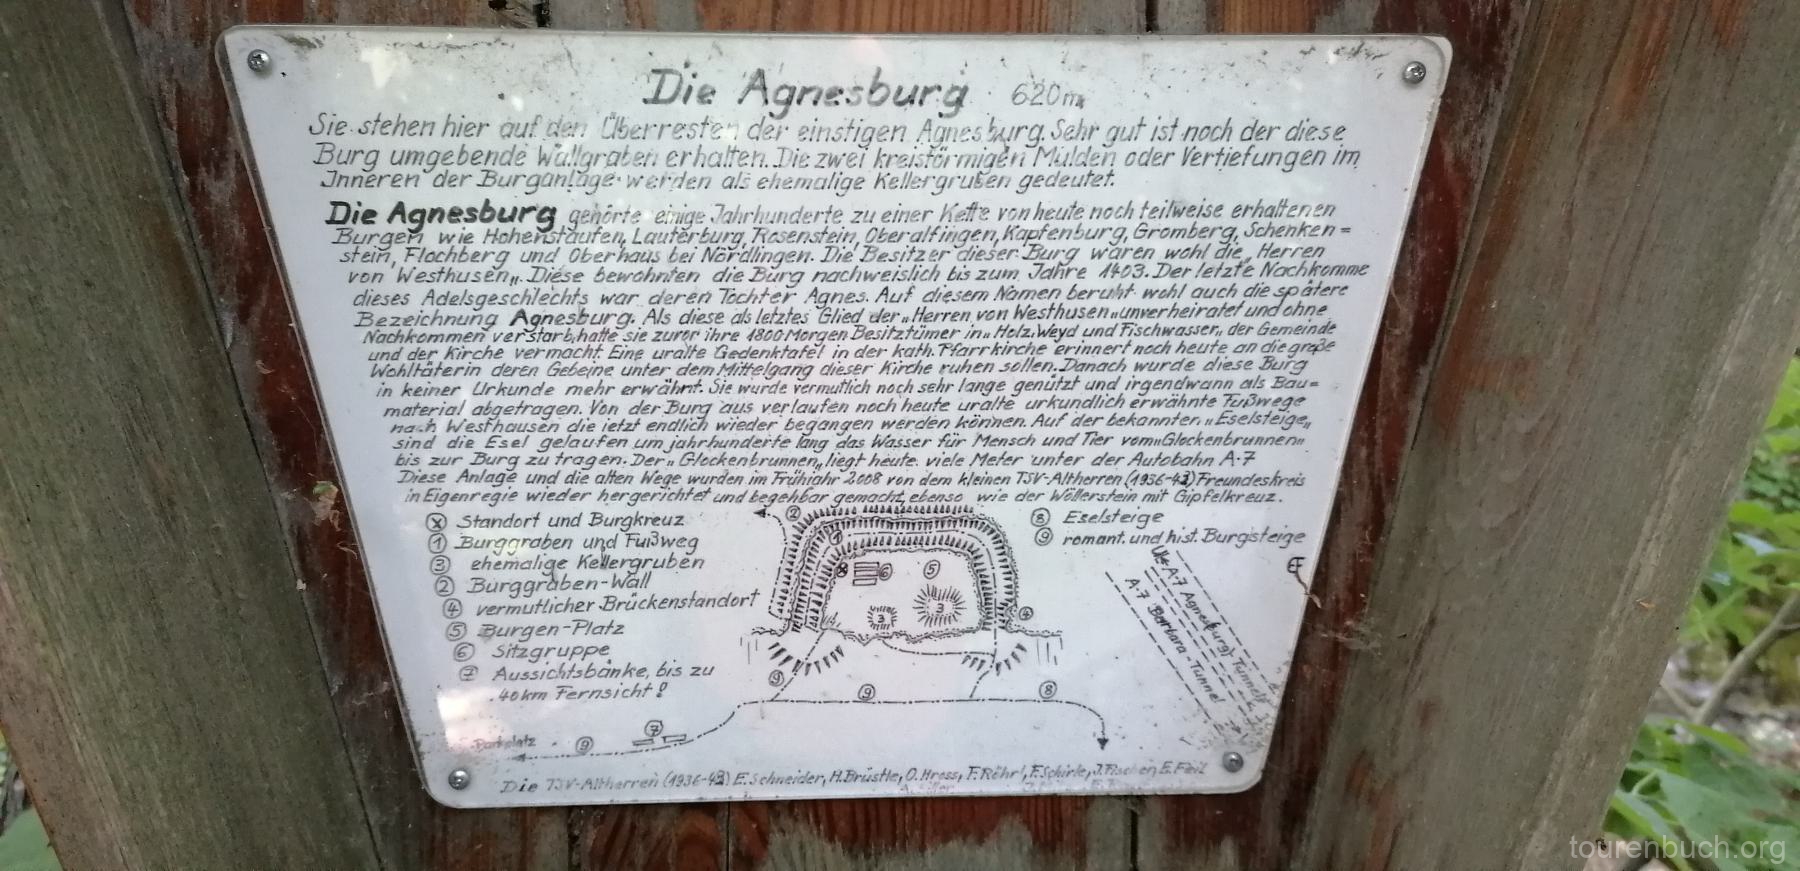 Die Agnesburg 620m
Sie stehen hier auf den Überresten der einstigen Agnesburg. Sehr gut ist noch der diese
Burg umgebende Wallgraben erhalten. Die zwei kreisförmigen Mulden oder Vertiefungen im
Inneren der Burganlage werden als ehemalige Kellergruben gedeutet.
Die Agnesburg gehörte einige Jahrhunderte zu einer Kette von heute noch teilweise erhaltenen
Burgen wie Hohenstaufen, Lauterburg, Rosenstein, Oberalfingen, Kapfenburg, Gromberg, Schenken=
stein, Flochberg und Oberhaus bei Nördlingen. Die Besitzer dieser Burg waren wohl die „Herren
von Westhusen„. Diese bewohnten die Burg nachweislich bis zum Jahre 1403. Der letzte Nachkomme
dieses Adelsgeschlechts war deren Tochter Agnes. Auf diesem Namen beruht wohl auch die spätere
Bezeichnung Agnesburg. Als diese als letztes Glied der „Herren von Westhusen„ unverheiratet und ohne
Nachkommen verstarb, hatte sie zuvor ihre 1800 Morgen Besitztümer in „Holz, Weyd und Fischwasser„ der Gemeinde
und der Kirche vermacht. Eine uralte Gedenktafel in der kath. Pfarrkirche erinnert noch heute an die große
Wohltäterin deren Gebeine unter dem Mittelgang dieser Kirche ruhen sollen. Danach wurde diese Burg
in keiner Urkunde mehr erwähnt. Sie wurde vermutlich noch sehr lange genützt und irgendwann als Bau=
material abgetragen. Von der Burg aus verlaufen noch heute uralte urkundlich erwähnte Fußwege
nach Westhausen die jetzt endlich wieder begangen werden können. Auf der bekannten „Eselsteige„
sind die Esel gelaufen um jahrhunderte lang das Wasser für Mensch und Tier vom „Glockenbrunnen„
bis zur Burg zu tragen. Der „Glockenbrunnen„ liegt heute viele Meter unter der Autobahn A-7
Diese Anlage und die alten Wege wurden im Frühjahr 2008 von dem kleinen TSV-Altherren (1936-43) Freundeskreis
in Eigenregie wieder hergerichtet und begehbar gemacht, ebenso wie der Wöllerstein mit Gipfelkreuz.
X Standort und Burgkreuz
1 Burggraben und Fußweg
3 ehemalige Kellergruben
2 Burggraben-Wall
4 vermutlicher Brückenstandort
5 Burgen-Platz
6 Sitzgruppe
7 Aussichtsbänke, bis zu
40km Fernsicht!
8 Eselsteige
9 romant. und hist. Burgsteige
EF
2
1
X
6
5
3
3
4
9
9
8
7
9
Parkplatz
A-7 Agnesburg Tunnel
A-7 Barbara-Tunnel
Die TSV-Altherren (1936-43) E. Schneider, H. Brüstle, O. Hross, F. Röhrl, F. Schirle, J. Fischer, E. Feil
tourenbuch.org